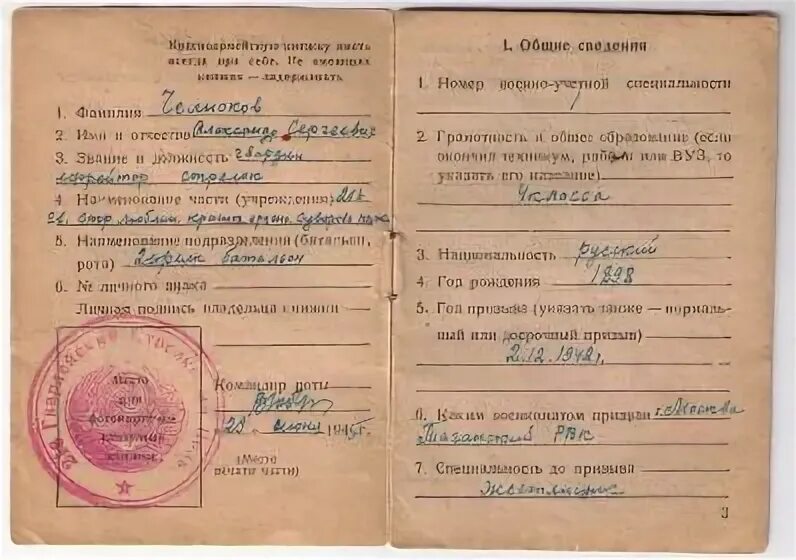 Красноармейскую книжку иметь
всегда при себе. Не имеющих
книжек — задерживать
1. Фамилия Челноков
2. Имя и отчество Александр Сергеевич
3. Звание и должность гвардии
ефрейтор стрелок
4. Наименование части (учреждения)
гв. стр. Люблин. красн. ордена Суворова
5. Наименование подразделения (батальон,
рота) батальон
6. № личного знака
Личная подпись владельца книжки
Место
для
фотокарточки
Командир роты
29 июня 1945г.
(Место
печати части)
I. Общие сведения
1. Номер военно-учетной специальности
2. Грамотность и общее образование (если
окончил техникум, рабфак или ВУЗ, то
указать его название)
4 класса
3. Национальность русский
4. Год рождения 1898
5. Год призыва (указать также — нормаль-
ный или досрочный призыв)
2.12.1942г.
6. Каким военкоматом призван г. Москва
Таганский РВК
7. Специальность до призыва
3